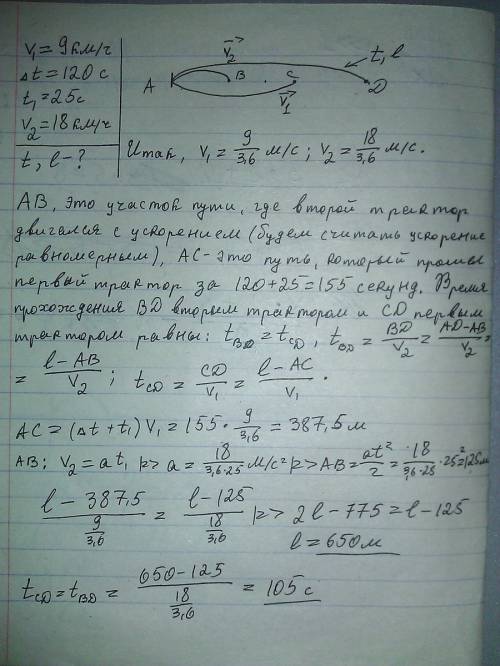 V₁ = 9 км/ч
Δt = 120 с
t₁ = 25 с
V₂ = 18 км/ч
t, l - ?
V₂ t, l
A B C D
V₁
Итак, V₁ = 9/3,6 м/с; V₂ = 18/3,6 м/с.
AB, это участок пути, где второй трактор
двигался с ускорением (будем считать ускорение
равномерным), AC - это путь, который прошел
первый трактор за 120+25=155 секунд. Время
прохождения BD вторым трактором и CD первым
трактором равны: t_BD = t_CD, t_BD = BD/V₂ = AD-AB/V₂ =
= l-AB/V₂; t_CD = CD/V₁ = l-AC/V₁.
AC = (Δt + t₁) V₁ = 155 · 9/3,6 = 387,5 м
AB: V₂ = at₁ |=> a = 18/3,6·25 м/с² |=> AB = at²/2 = 18/3,6·25 · 25² = 125 м
l - 387,5 / 9/3,6 = l - 125 / 18/3,6 |=> 2l - 775 = l - 125
l = 650 м
t_CD = t_BD = 650 - 125 / 18/3,6 = 105 с